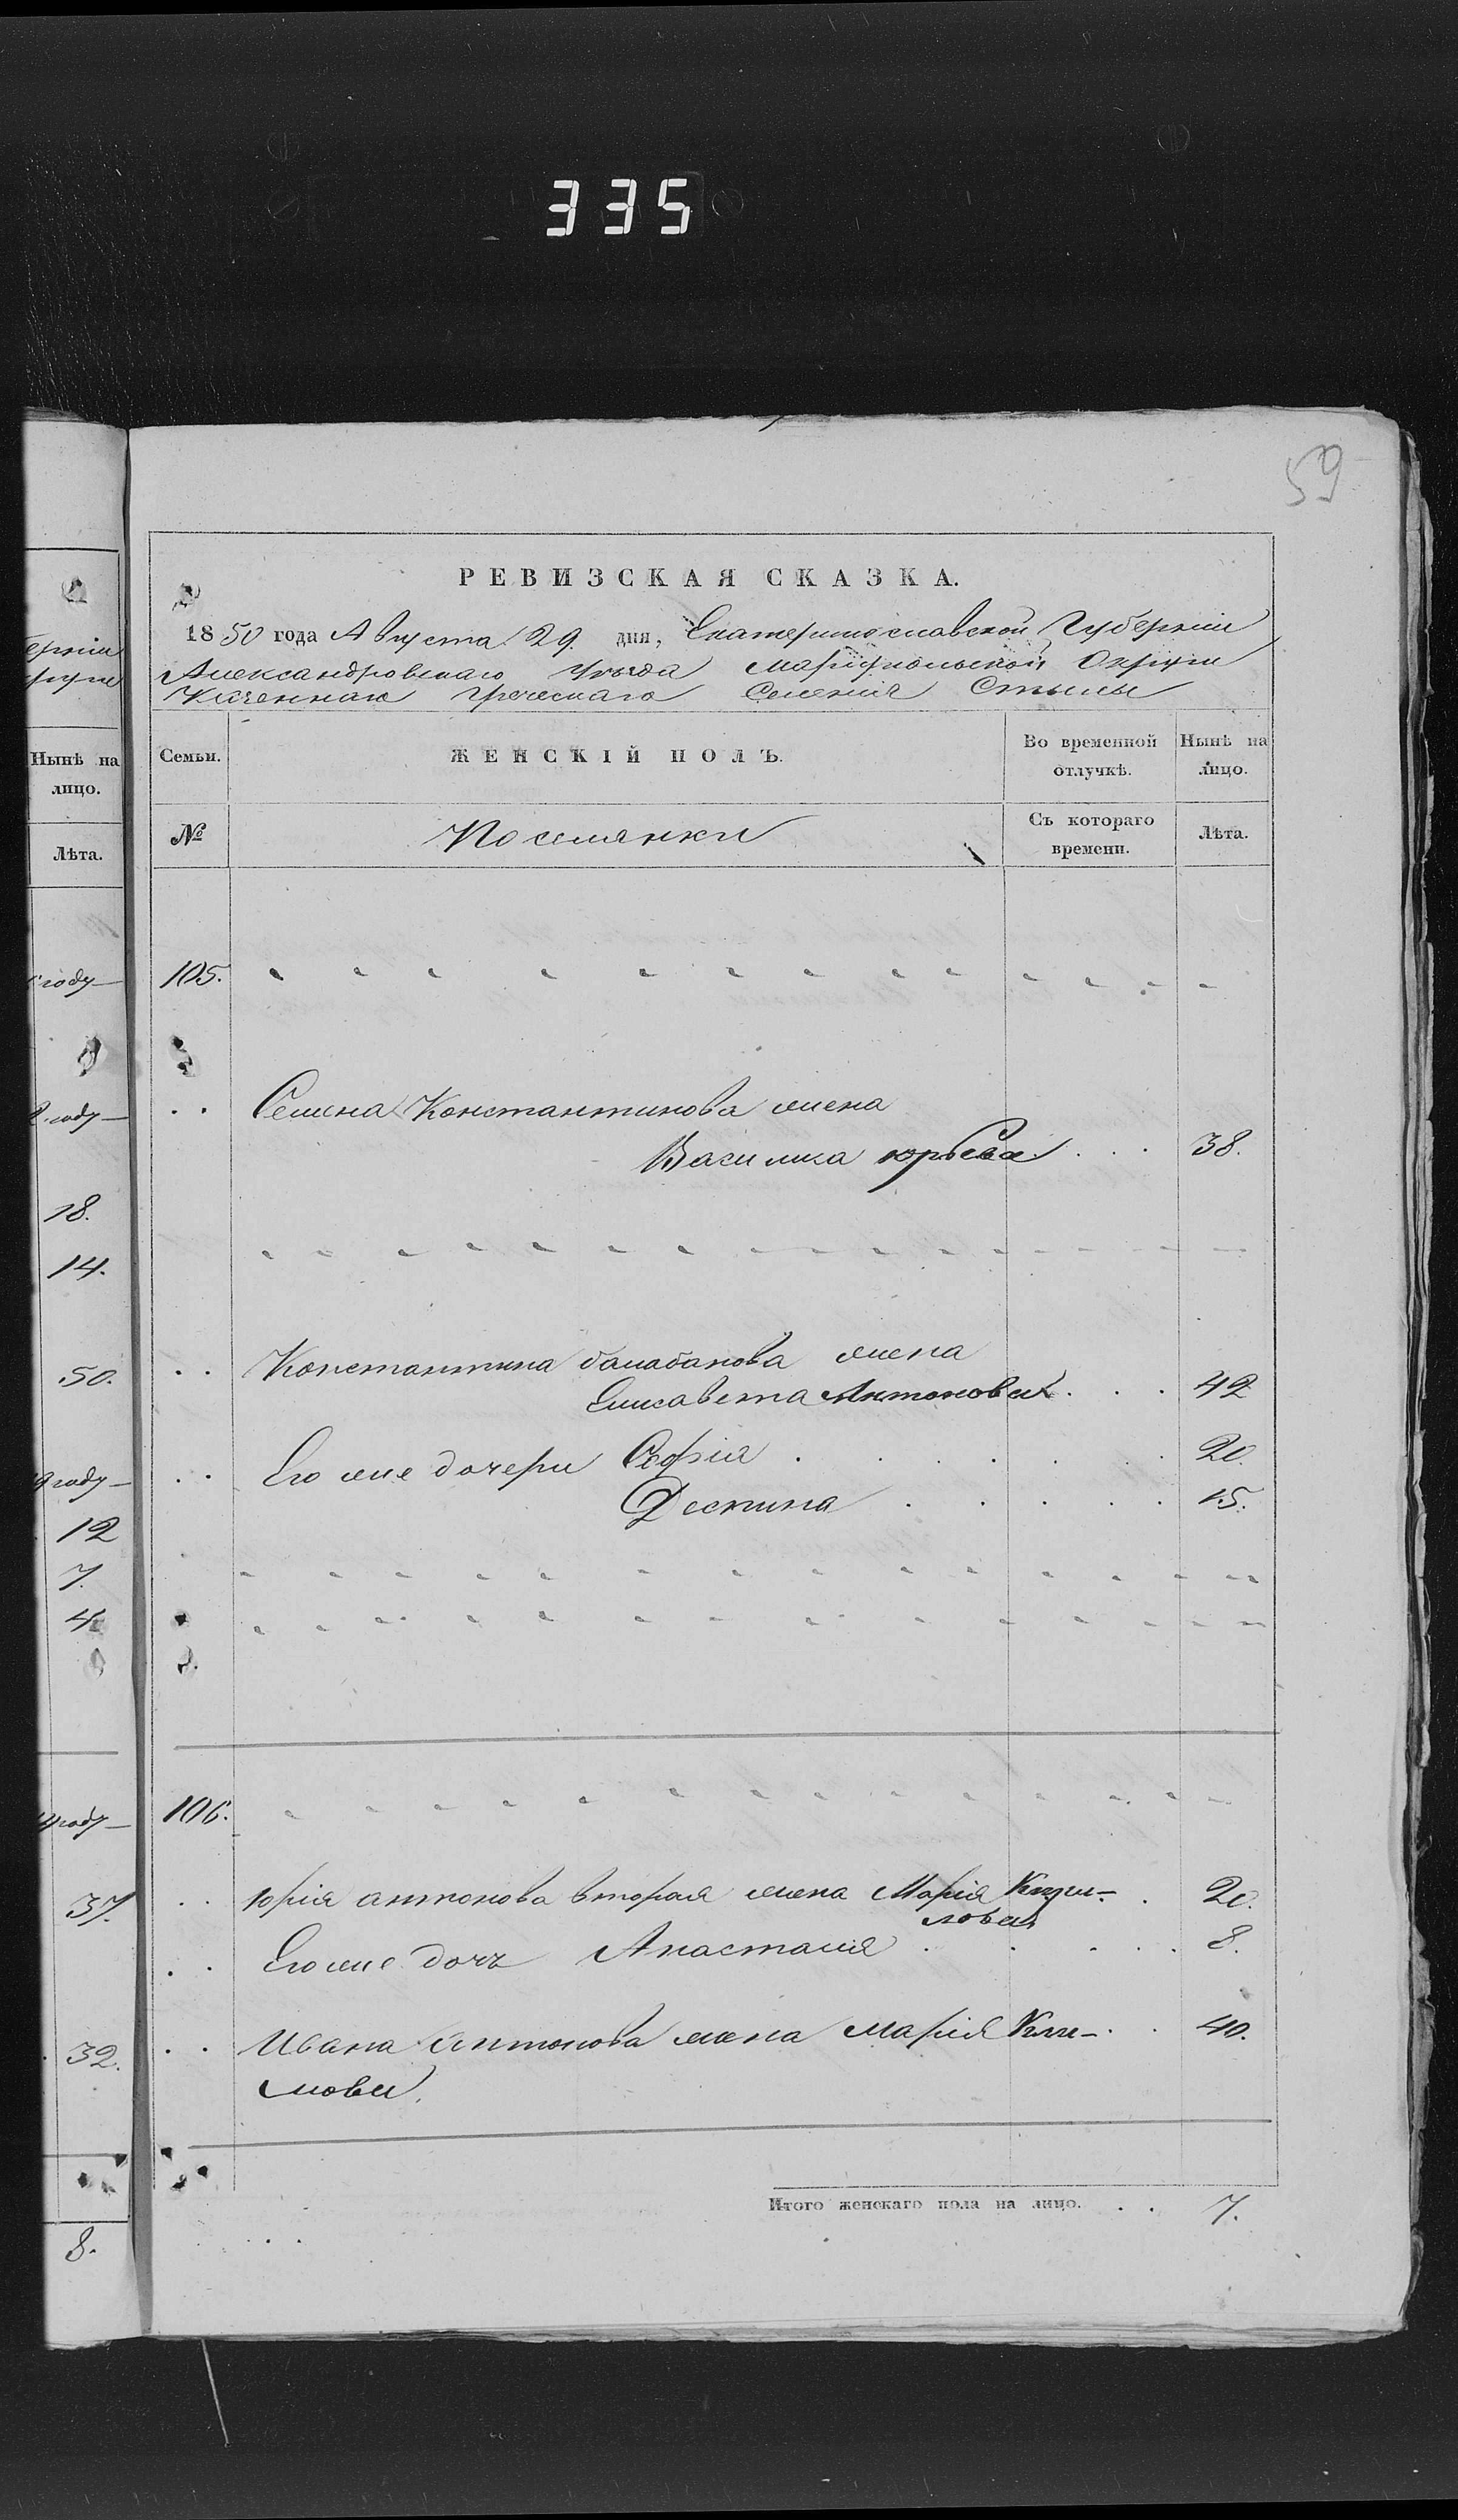 335
59
РЕВИЗСКАЯ СКАЗКА.
1850 года Августа 29. дня, Екатеринославской Губерніи
Александровскаго уѣзда Маріупольской Округи
Казеннаго Греческаго Селенія Стылы
Семьи. ЖЕНСКІЙ ПОЛЪ. Во временной отлучкѣ. Нынѣ на лицо.
№ Поселянки Съ котораго времени. Лѣта.
105.
Семена Константинова жена
Василика юрьева 38.
Константина балабанова жена
Елисавета Антонова 42
Его же дочери Софія 20.
Деспина 15.
106.
юрія антонова вторая жена Марія Кири-
лова 20.
Его же дочь Анастасія 8.
Ивана Антонова жена марія Кли- 40.
мова.
Итого женскаго пола на лицо. 7.
Нынѣ на
лицо.
Лѣта.
году
году
18.
14.
50.
году
12
7.
4
году
37.
32.
8.